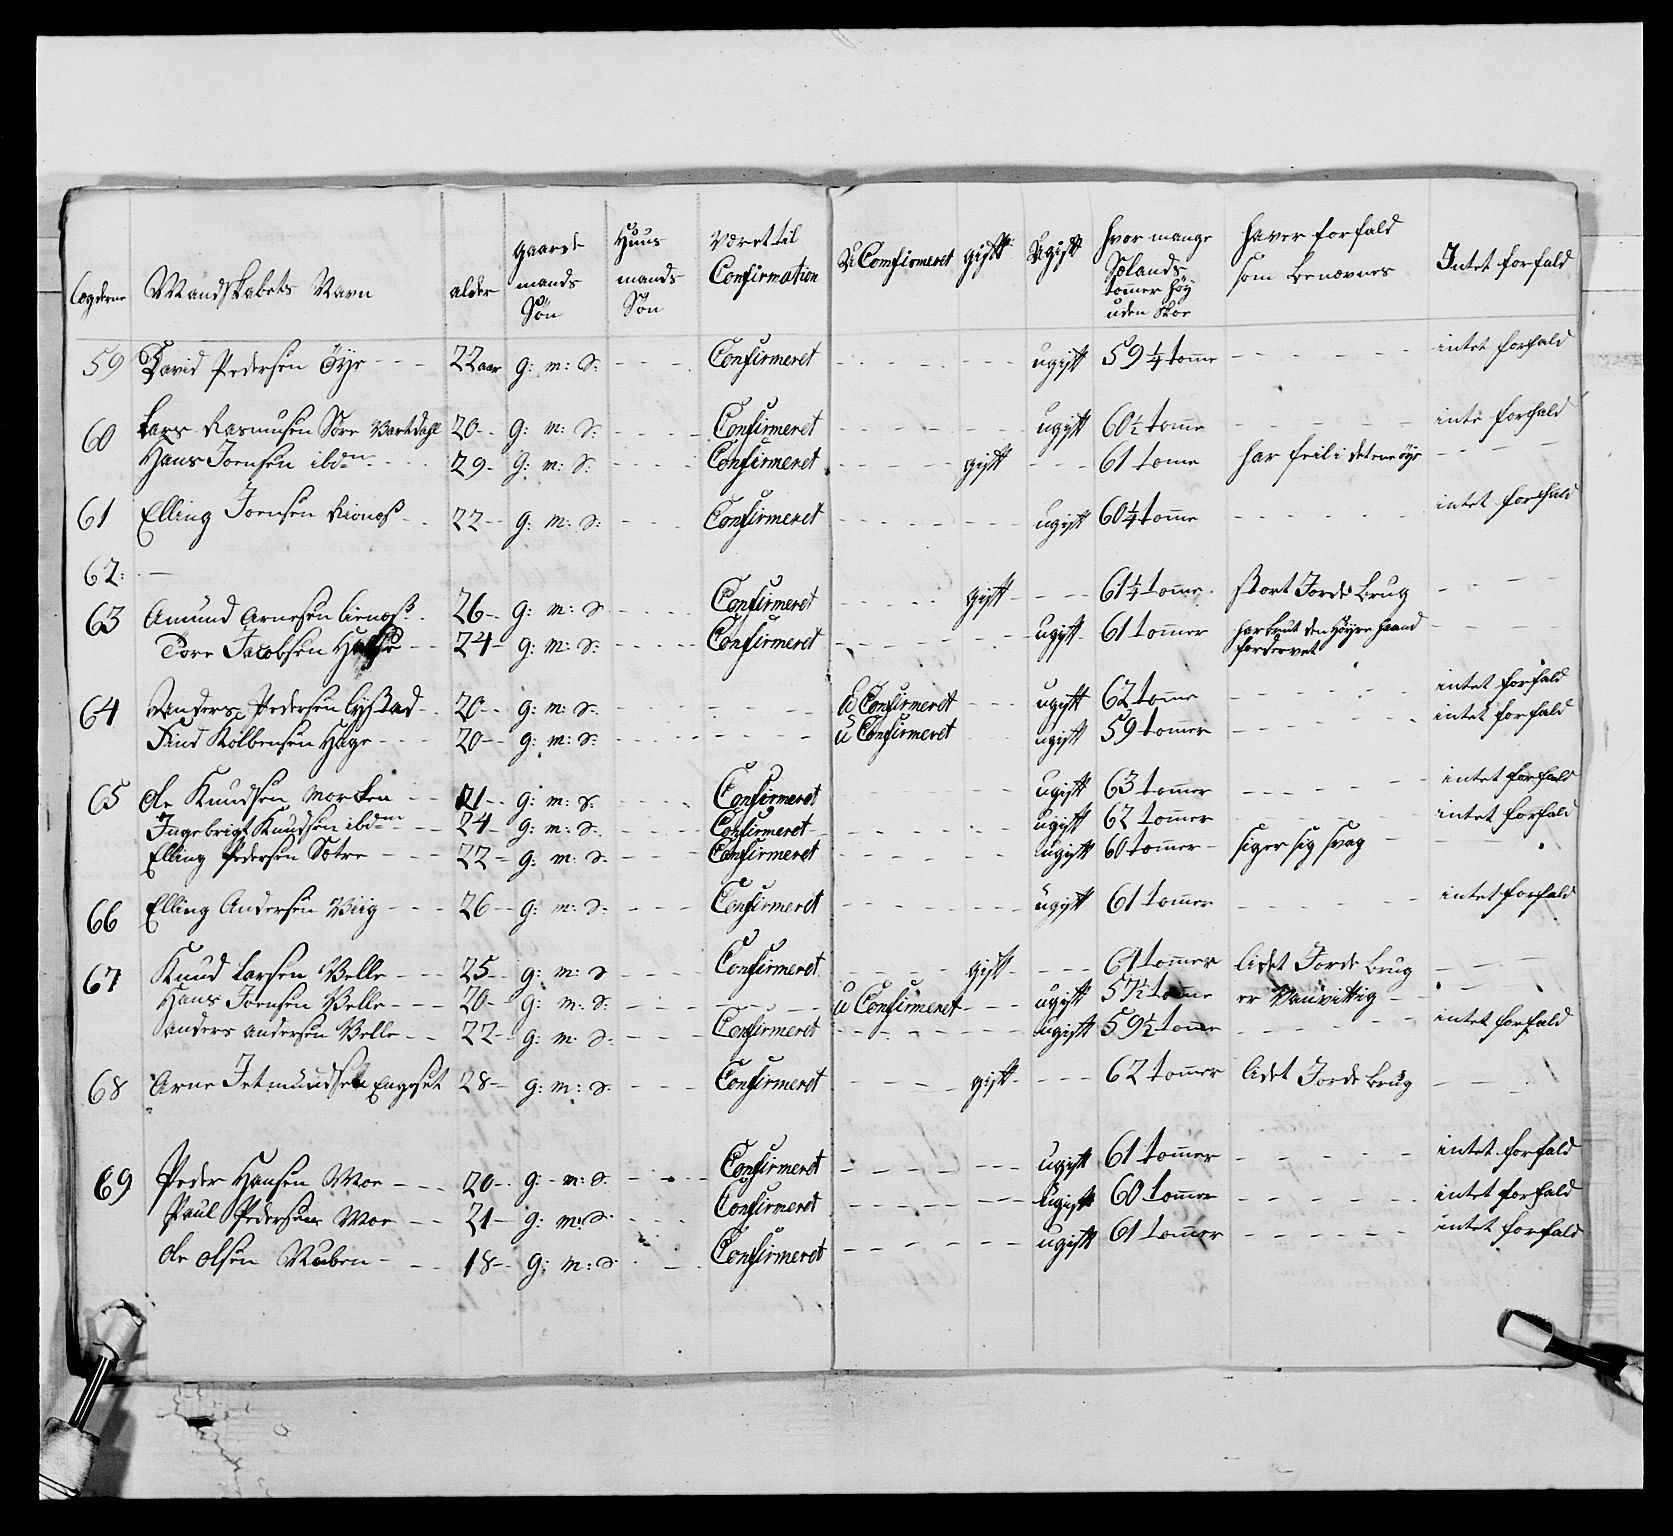 Lægderne | Mandskabets Navn | alder | gaards mands Søn | Huus mands Søn | Været til Confirmation | U Comfirmeret | gift | Ugift | hvor mange Sælands tom̄er høy uden Skoe | haver forfald som benævnes | Intet forfald
59 David Pedersen Öye - - 22 aar g: m: S: - - - Confirmeret - - - ugift 59 1/4 tome - - - intet forfald
60 Lars Rasmusen Søre Vartdahl 20 - g: m: S: - - - Confirmeret - - - ugift 60 1/2 tom̄e - - - inte forfald
Hans Joensen ibdn - - 29 - g: m: S: - - - Confirmeret - - - gift - - - 61 tome har feil i det ene öye - - -
61 Elling Joensen - - 22 - g: m: S: - - - Confirmeret - - - ugift 60 1/4 tom̄e - - - intet forfald
62: -
63 Amund Arnesen - 26 - g: m: S - - - Confirmeret - - - gift - - - 61 1/4 tom̄e stort Jorde Brug - - -
Tore Jacobsen - - 24 - g: m: S: - - - Confirmeret - - - ugift 61 tom̄er har brut den Höyre haand fordervet - - -
64 Anders Pedersen Lystad - 20 - g: m: S: - - - U Confirmeret - - ugift 62 tom̄e - - - intet forfald
Find Kolbensen Hage - - 20 - g: m: S: - - - U Confirmeret ugift 59 tom̄er - - - intet forfald
65 Ole Knudsen Morken - - 21 - g: m: S: - - - Confirmeret ugift 63 tom̄er - - - intet forfald
Ingebrigt Knudsen ibdm - - 24 - g: m: S: Confirmeret - - - ugift 62 tom̄er - - - intet forfald
Elling Pedersen Sætre - - - 22 - g: m: S: - - - Confirmeret - - - ugift 60 tom̄er - siger sig svag - - -
66 Elling Andersen Viig - - - 26 - g: m: S: - - - Confirmeret - - - ugift 61 tom̄er - - - intet forfald
67 Knud Larsen Velle - - - 25 - g: m: S - - - Confirmeret - - - gift - - - 61 tom̄er lidet Jorde Brug - - -
Hans Joensen Velle - - - 20 - g: m: S: - - - U Confirmeret - - - ugift 57 1/2 tom̄e er Vanvittig - -
anders andersen Velle - - 22 - g: m: S: - - - Confirmeret - - - ugift 59 1/2 tome - - - intet forfald
68 Arne Jetmundsen Engeset 28 - g: m: S: - - - Confirmeret - - - gift - - - 62 tom̄er lidet Jorde Brug - - -
69 Peder Hansen Moe - - - 20 - g: m: S. - - - Confirmeret - - - ugift 61 tom̄er - - - intet forfald
Paul Pedersen Moe - - 21 - g: m: S: - - - Confirmeret - - - ugift 60 tom̄er - - - intet forfald
Ole Olsen - - 18 - g: m: S - - Confirmeret - - - ugift 61 tom̄er - - - intet forfald